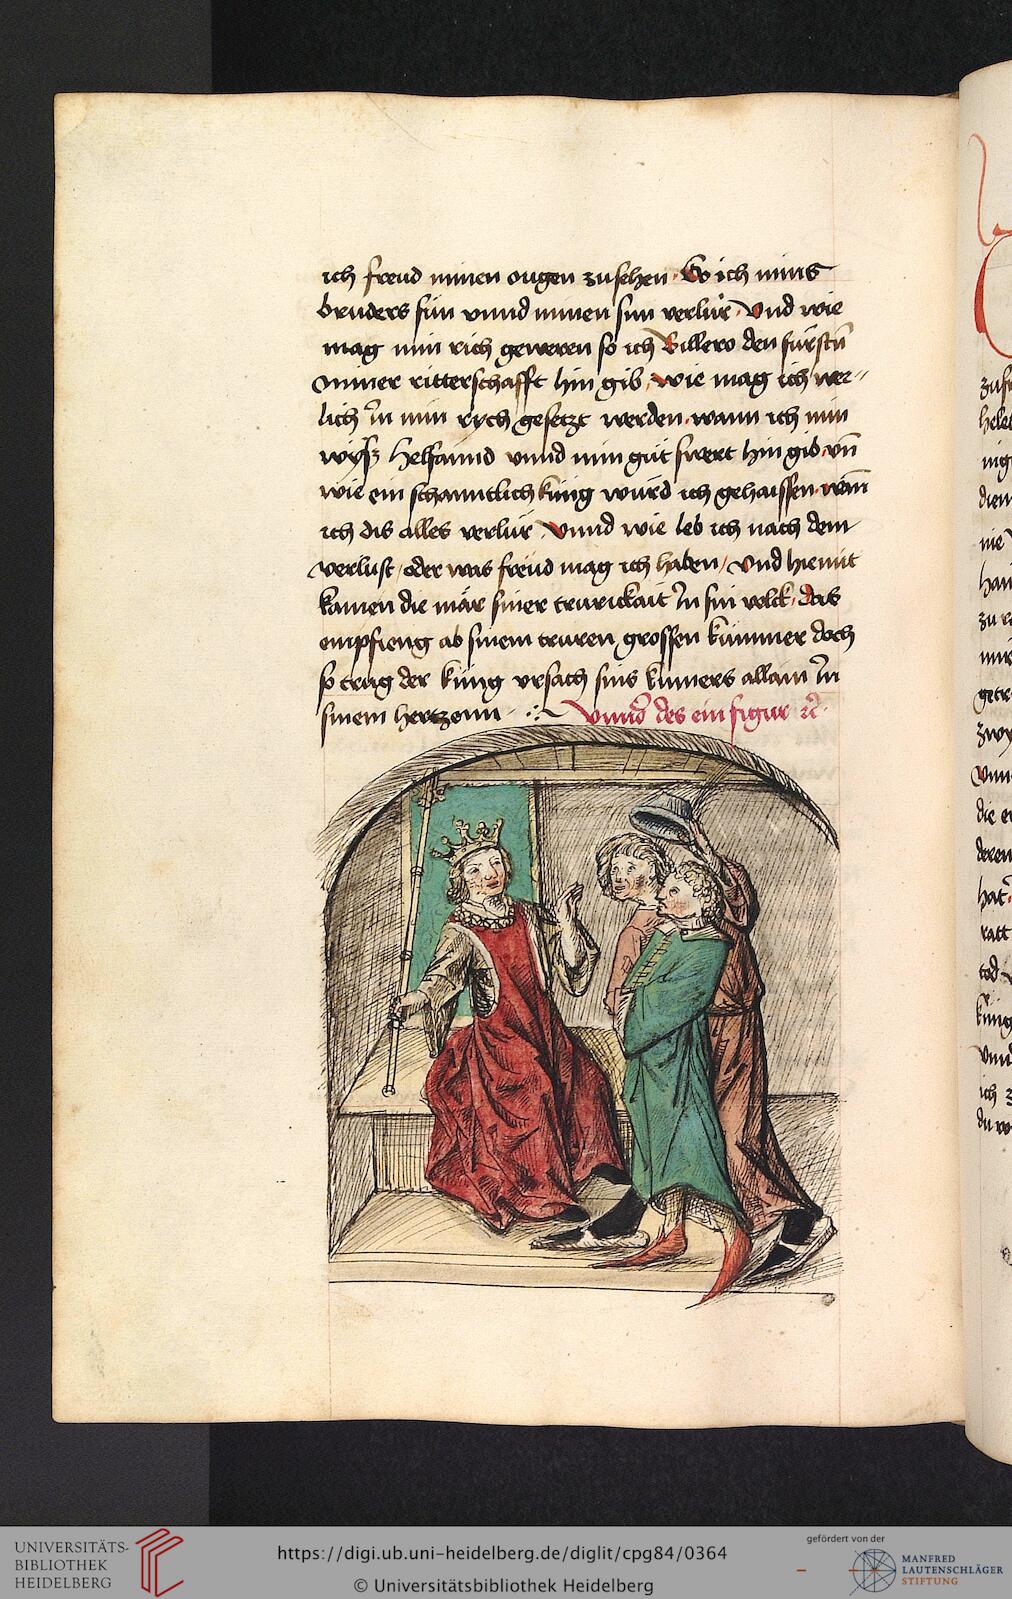 ich freud minen ougen zusehen · So ich mins
bruders sün vnnd minen sun verlür · Vnd wie
mag min rich geweren so ich Billero den fürstn̄
miner ritterschafft hin gib, wie mag ich wer-
lich Jn min rych gesetzt werden · wann ich min
wyß helfannd vnnd min güt swert hin gib · vn̄
wie ein schanntlich küng wurd ich gehaissen · wan̄
ich dis alles verlür · Vnnd wie leb ich nach dem
verlust / oder was freüd mag ich haben / Vnd hiemit
kamen die mär siner trurickait Jn sin volck · das
empfieng ab sinem truren grossen kummer doch
so trug der küng vrsach sins kumers allain Jn
sinem hertzenn · Vnnd des ein figur ꝛc ·
zuse
hele
mg
dien
nie
han
zu
mir
getr
zwy
vnn
die e
deren
hat
ratt
tod
küng
vnn
ich z
du w
UNIVERSITÄTS-
BIBLIOTHEK
HEIDELBERG
https://digi.ub.uni-heidelberg.de/diglit/cpg84/0364
© Universitätsbibliothek Heidelberg
gefördert von der
MANFRED
LAUTENSCHLÄGER
STIFTUNG